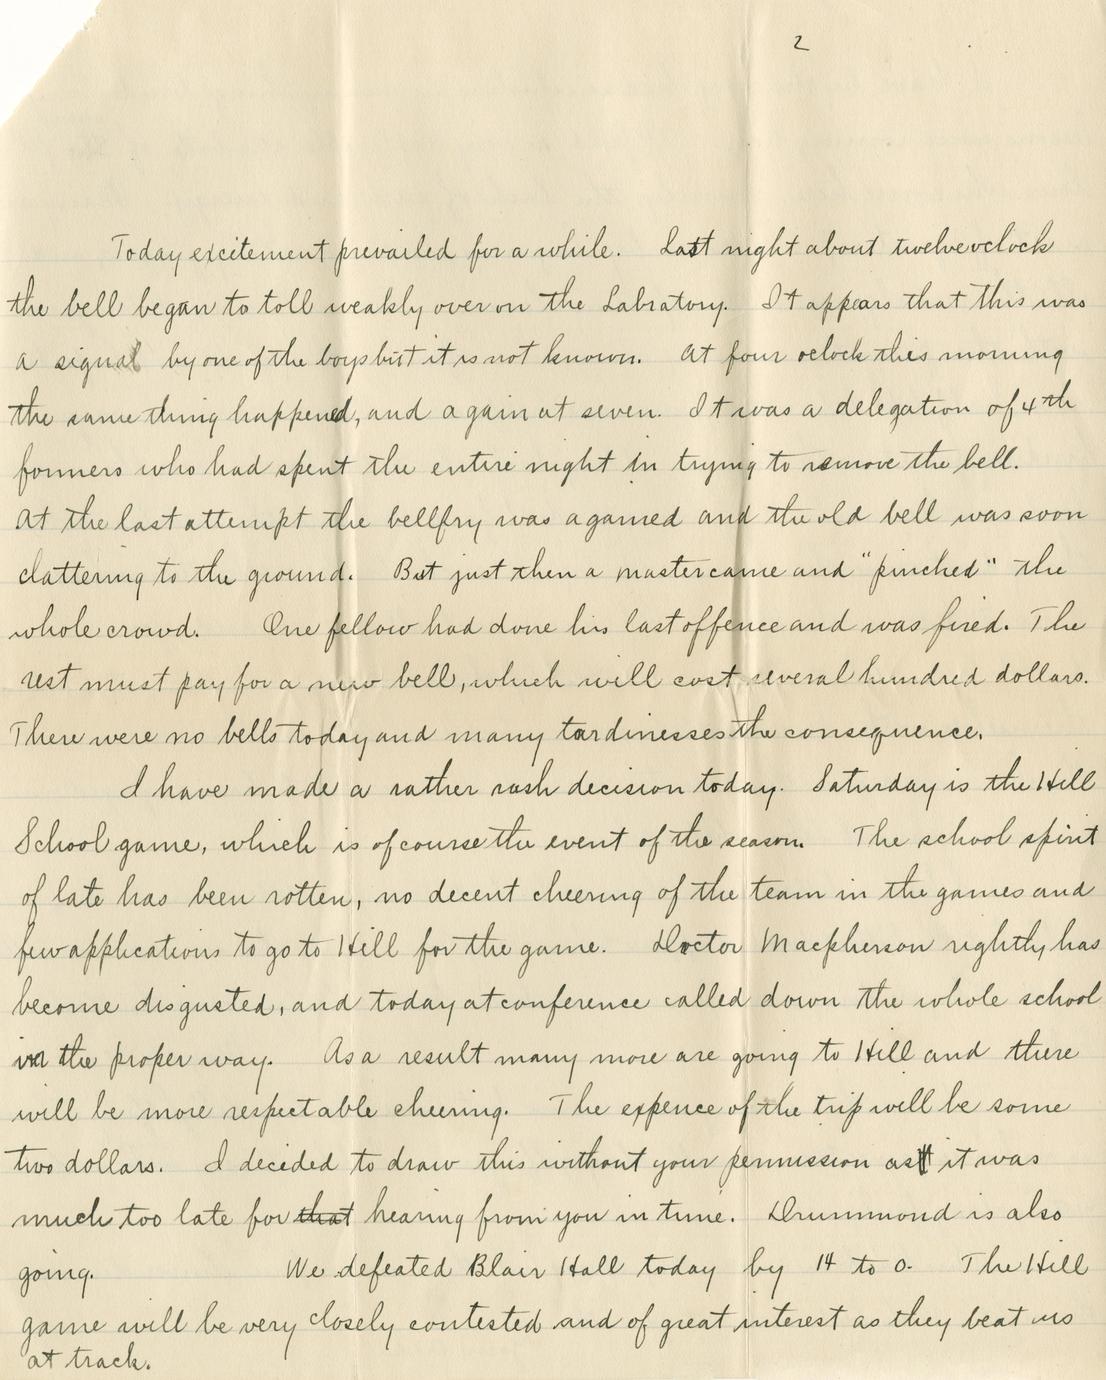 2
Today excitement prevailed for a while. Last night about twelve oclock
the bell began to toll weakly over on the Labratory. It appears that this was
a signal by one of the boys but it is not known. At four oclock this morning
the same thing happened, and again at seven. It was a delegation of 4th
formers who had spent the entire night in trying to remove the bell.
At the last attempt the bellfry was agained and the old bell was soon
clattering to the ground. But just then a master came and "pinched" the
whole crowd. One fellow had done his last offence and was fired. The
rest must pay for a new bell, which will cost several hundred dollars.
There were no bells today and many tardinesses the consequence.
I have made a rather rash decision today. Saturday is the Hill
School game, which is of course the event of the season. The school spirit
of late has been rotten, no decent cheering of the team in the games and
few applications to go to Hill for the game. Doctor Macpherson rightly has
become disgusted, and today at conference called down the whole school
in the proper way. As a result many more are going to Hill and there
will be more respectable cheering. The expence of the trip will be some
two dollars. I decided to draw this without your permission as it was
much too late for that hearing from you in time. Drummond is also
going. We defeated Blair Hall today by 14 to 0. The Hill
game will be very closely contested and of great interest as they beat us
at track.